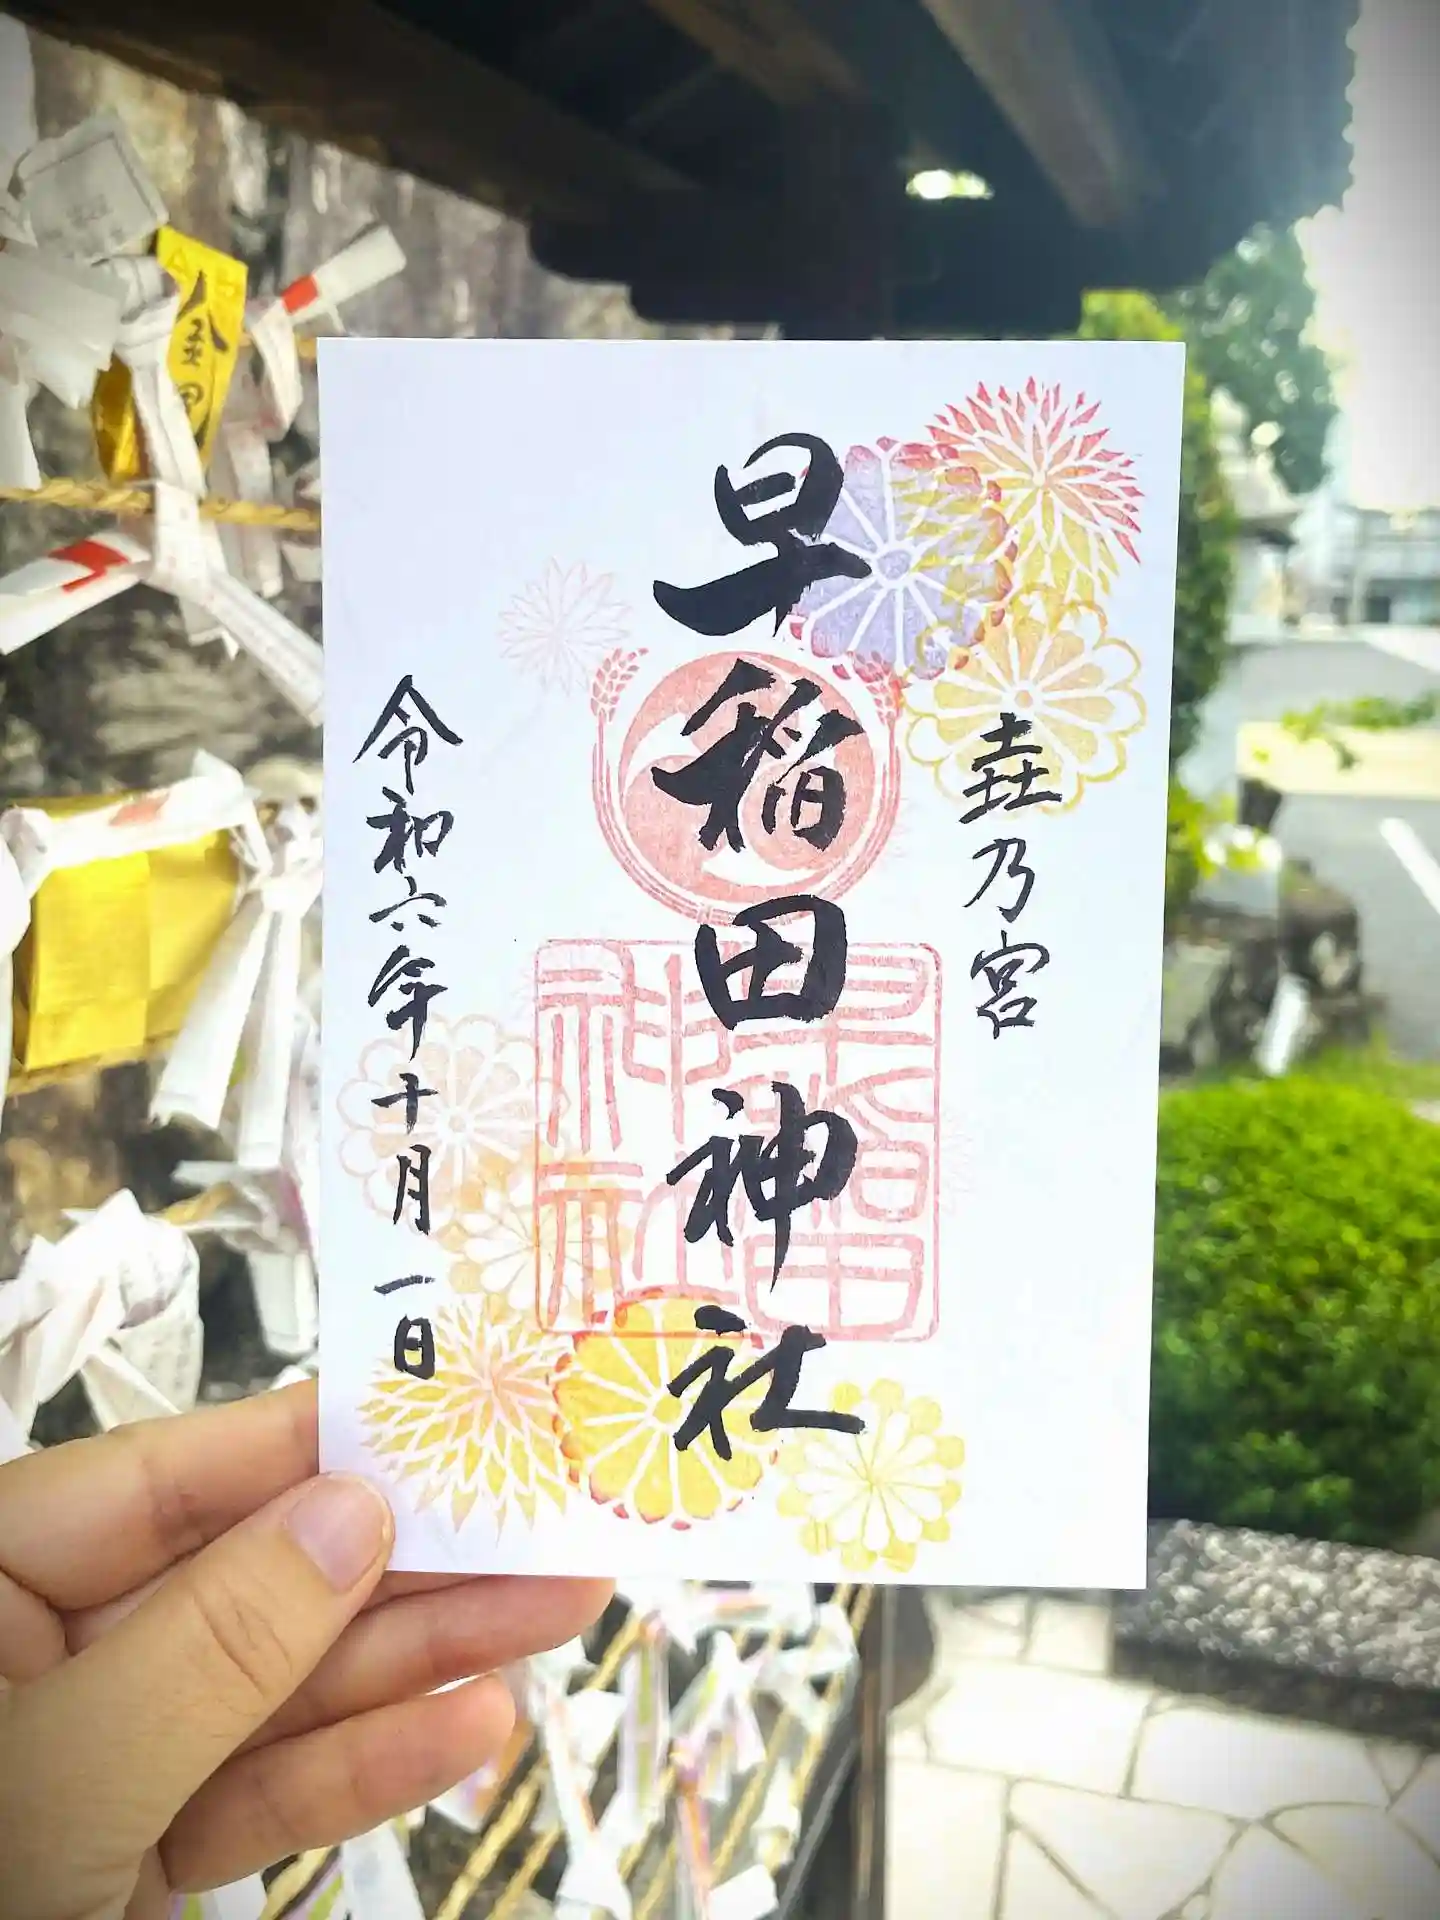 垚乃宮
早稲田神社
早稲田神社
令和六年十月一日